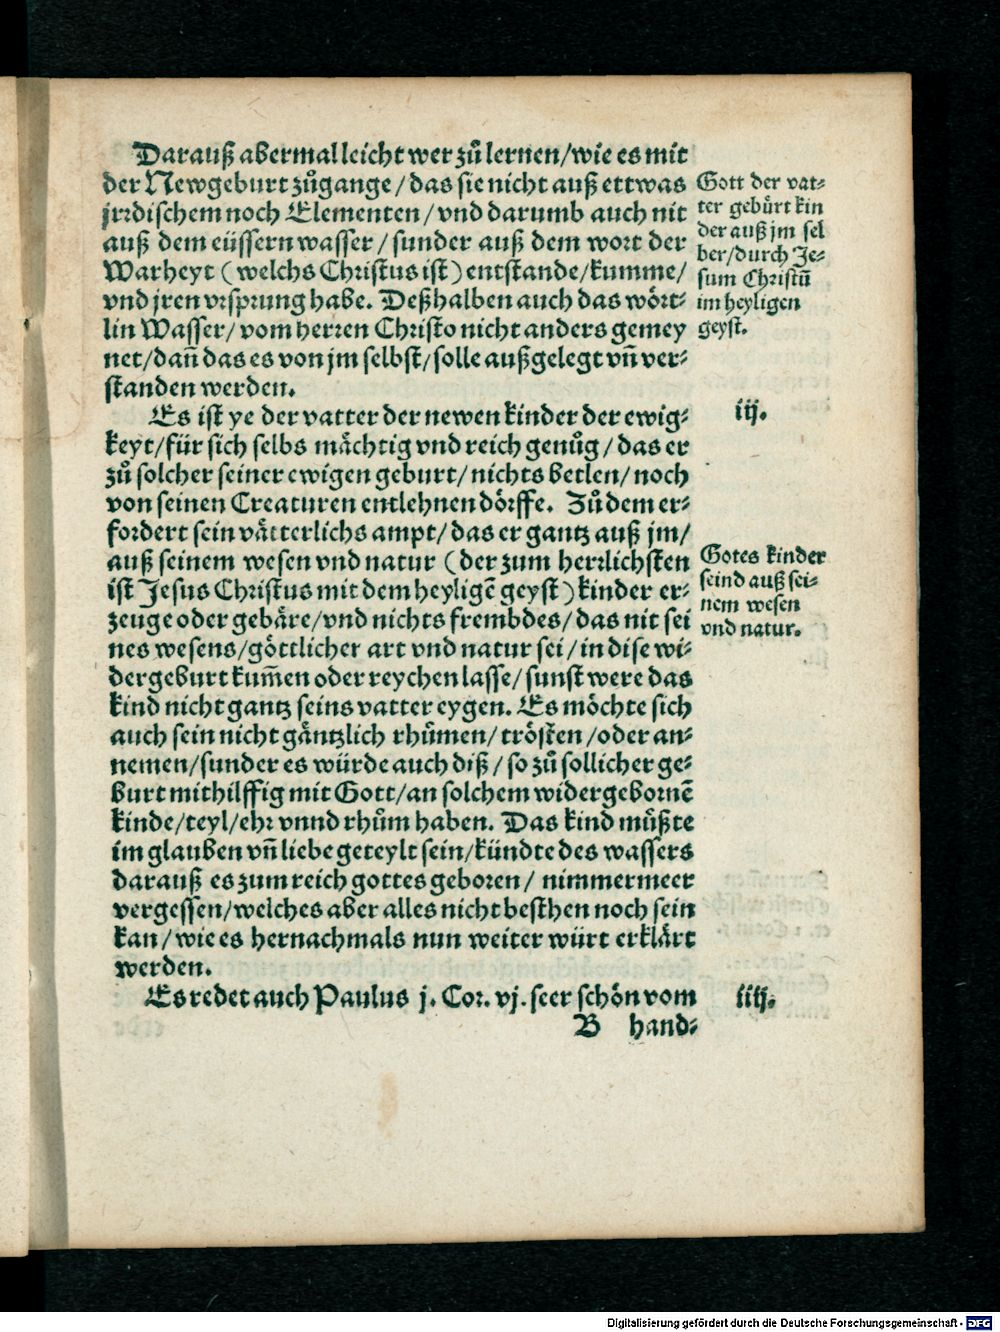 Darauß abermal leicht wer zuͦ lernen/wie es mit
der Newgeburt zuͦgange/das sie nicht auß ettwas
jrrdischem noch Elementen/vnd darumb auch nit
auß dem eüssern wasser/sunder auß dem wort der
Warheyt (welchs Christus ist) entstande/kumme/
vnd jren vrsprung habe. Deßhalben auch das wört-
lin Wasser/vom herren Christo nicht anders gemey
net/dañ das es von jm selbst/solle außgelegt vñ ver-
standen werden.
Gott der vat-
ter gebürt kin
der auß jm sel
ber/durch Je-
sum Christũ
im heyligen
geyst.
Es ist ye der vatter der newen kinder der ewig-
keyt/für sich selbs mächtig vnd reich genuͦg/das er
zuͦ solcher seiner ewigen geburt/nichts betlen/noch
von seinen Creaturen entlehnen dörffe. Zuͦ dem er-
fordert sein vätterlichs ampt/das er gantz auß jm/
auß seinem wesen vnd natur (der zum herrlichsten
ist Jesus Christus mit dem heyligẽ geyst) kinder er-
zeuge oder gebäre/vnd nichts frembdes/das nit sei
nes wesens/göttlicher art vnd natur sei/in dise wi-
dergeburt kum̃en oder reychen lasse/sunst were das
kind nicht gantz seins vatter eygen. Es möchte sich
auch sein nicht gäntzlich rhuͤmen/trösten/oder an-
nemen/sunder es würde auch diß/so zuͦ sollicher ge-
burt mithilffig mit Gott/an solchem widergebornẽ
kinde/teyl/ehr vnnd rhuͦm haben. Das kind muͤßte
im glauben vñ liebe geteylt sein/kündte des wassers
darauß es zum reich gottes geboren/nimmermeer
vergessen/welches aber alles nicht besthen noch sein
kan/wie es hernachmals nun weiter würt erklärt
werden.
iij.
Gotes kinder
seind auß sei-
nem wesen
vnd natur.
Es redet auch Paulus j. Cor. vj. seer schön vom
iiij.
B hand-
Digitalisierung gefördert durch die Deutsche Forschungsgemeinschaft - DFG